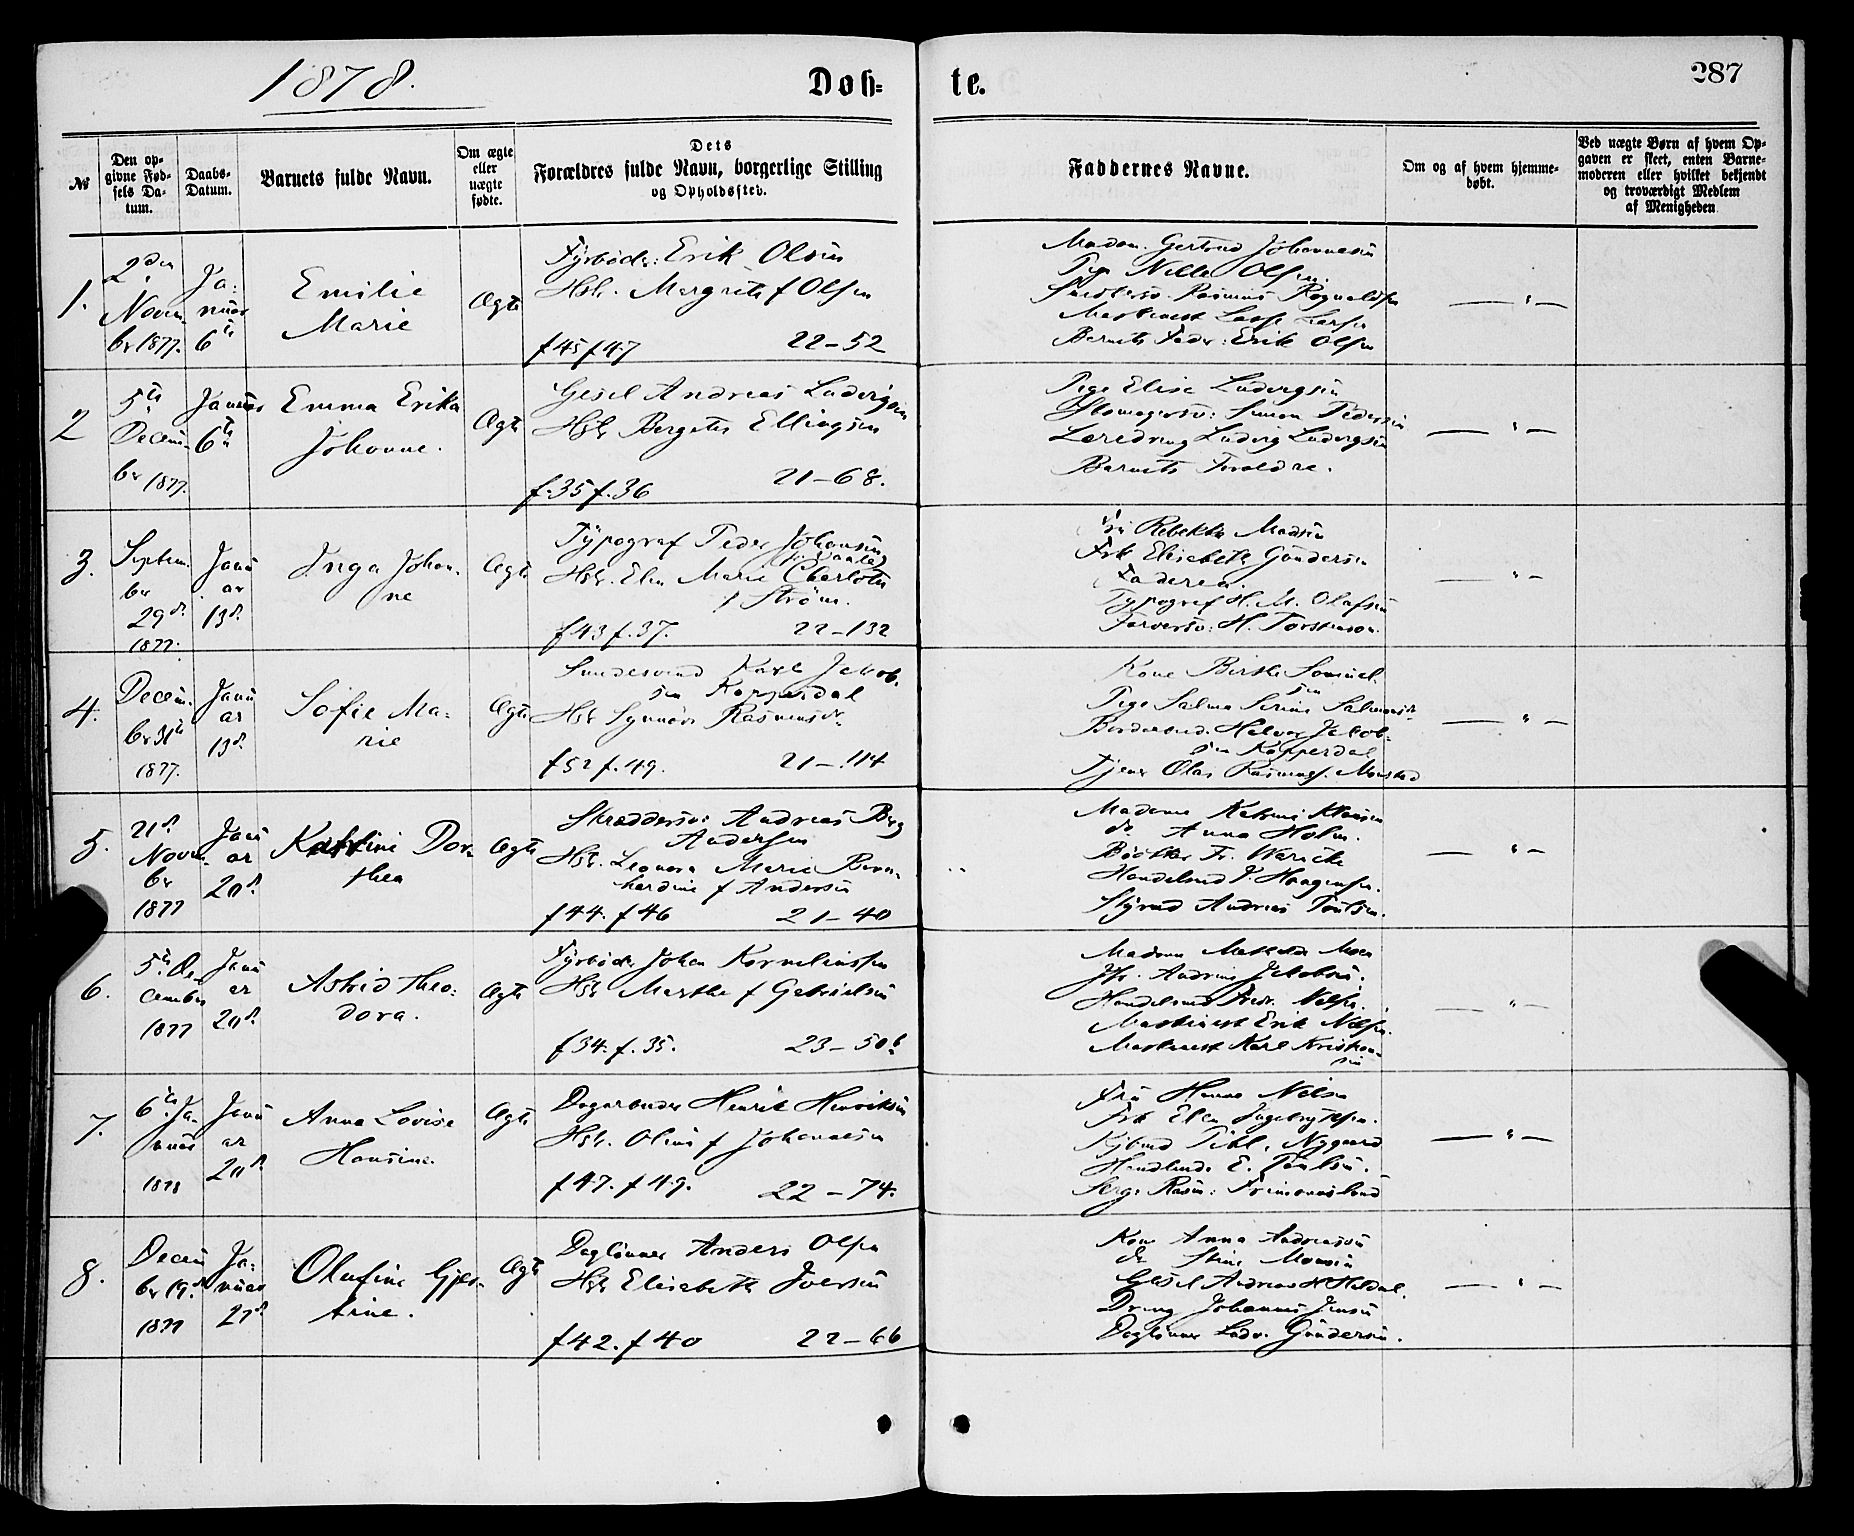 1878.
Døb=
te.
287
№
Den op-
givne Fød-
sels Da-
tum.
Daabs-
Datum.
Barnets fulde Navn.
Om ægte
eller
uægte
fødte.
Dets
Forældres fulde Navn, borgerlige Stilling
og Opholdssted.
Faddernes Navne.
Om og af hvem hjemme-
døbt.
Ved uægte Børn af hvem Op-
gaven er skeet, enten Barne-
moderen eller hvilket bekjendt
og troværdigt Medlem
af Menigheden
1.
2den
Novem
br 1877.
Ja-
nuar
6te
Emilie
Marie
Ægte
Fyrbøder: Erik Olsen
Hst. Margrete f Olsen
f45 f47 22-52
Madam. Gertrud Johannesen
Pige Nille Olsen
Rasmus Rognaldsen
Maskinist Lasse Larsen
Barnets Fader: Erik Olsen
— " —
2
5te
Decem
br 1877.
Januar
6te
Emma Erika
Johanne.
Ægte
Gesel Andreas Ludvigsen
Hst. Bergete Ellingsen
f.35 f.36 21-68.
Pige Elise Ludvigsen
Skomagersv: Simon Pedersen
Læredreng Ludvig Ludvigsen
Barnets Forældre.
— " —
3.
Septem
br
29d.
1877.
Janu
ar
13d.
Inga Johan-
ne
Ægte
Typograf Peder Johansen
Hst. Elen Marie Charlotte
f Strøm.
f43 f.37. 22-132
Fru Rebekka Madsen
Frk Elisabeth Gundersen
Faderen.
Typograf H. M. Olafsen
Farversv: H. Torstenson.
— " —
4.
Decem
br 31te
1877.
Janu
ar
13d.
Sofie Ma-
rie
Ægte
Karl Jakob-
sen Kopperdal
Hst Synnøve Rasmusdr.
f52 f.49. 21-114
Kone Birthe Samuel-
sen
Pige Salma Serine Salamonsdr.
Halvor Jakob-
sen Kopperdal
Tjener Olai Rasmus. Monstad
— " —
5.
21d.
Novem
br
1877
Janu
ar
20d.
Katrine Dor-
thea
Ægte
Skræddersv: Andreas Berg
Andersen
Hst. Leonora Marie Bern-
hardine f Andersen
f44. f46 21-40
Madame Katrine Klausen
do Anna Holm.
Bødker Fr. Warncke
Handelsmd J. Haagensen.
Styrmd Andreas Poulsen.
— " —
6.
5te De
cember
1877
Janu
ar
20d.
Astrid Theo-
dora.
Ægte
Fyrbøder Johan Korneliussen
Hst Marthe f Gabrielsen
f34. f.35. 23-50b
Madame Mathilde Moe
Jfr. Andrine Jakobsen.
Handelsmd Fredr. Nilsen.
Maskinist Erik Nilsen.
Maskinist Karl Kristian-
sen
— " —
7.
6te Ja-
nuar
1878
Janu
ar
20d.
Anna Lovise
Hansine.
Ægte
Dagarbeider Henrik Henriksen
Hst. Oline f Johannesen
f47. f49. 22-74.
Fru Hanna Nilsen
Frk Elen Ingebrigtsen.
Kjbmd Nygaard
E. Paulsen.
Serg. Rasm:
— " —
8.
Decem
br 19d.
1877
Ja-
nuar
27d.
Olufine Gjer-
trine.
Ægte
Daglønner Anders Olsen
Hst Elisabeth Iversen
f42. f40 22-66
Kone Anna Andreasen
do Stine Monsen
Gesel Andreas H Hesdal.
Dreng Johannes Jensen
Daglønner Ludv. Gundersen.
— " —